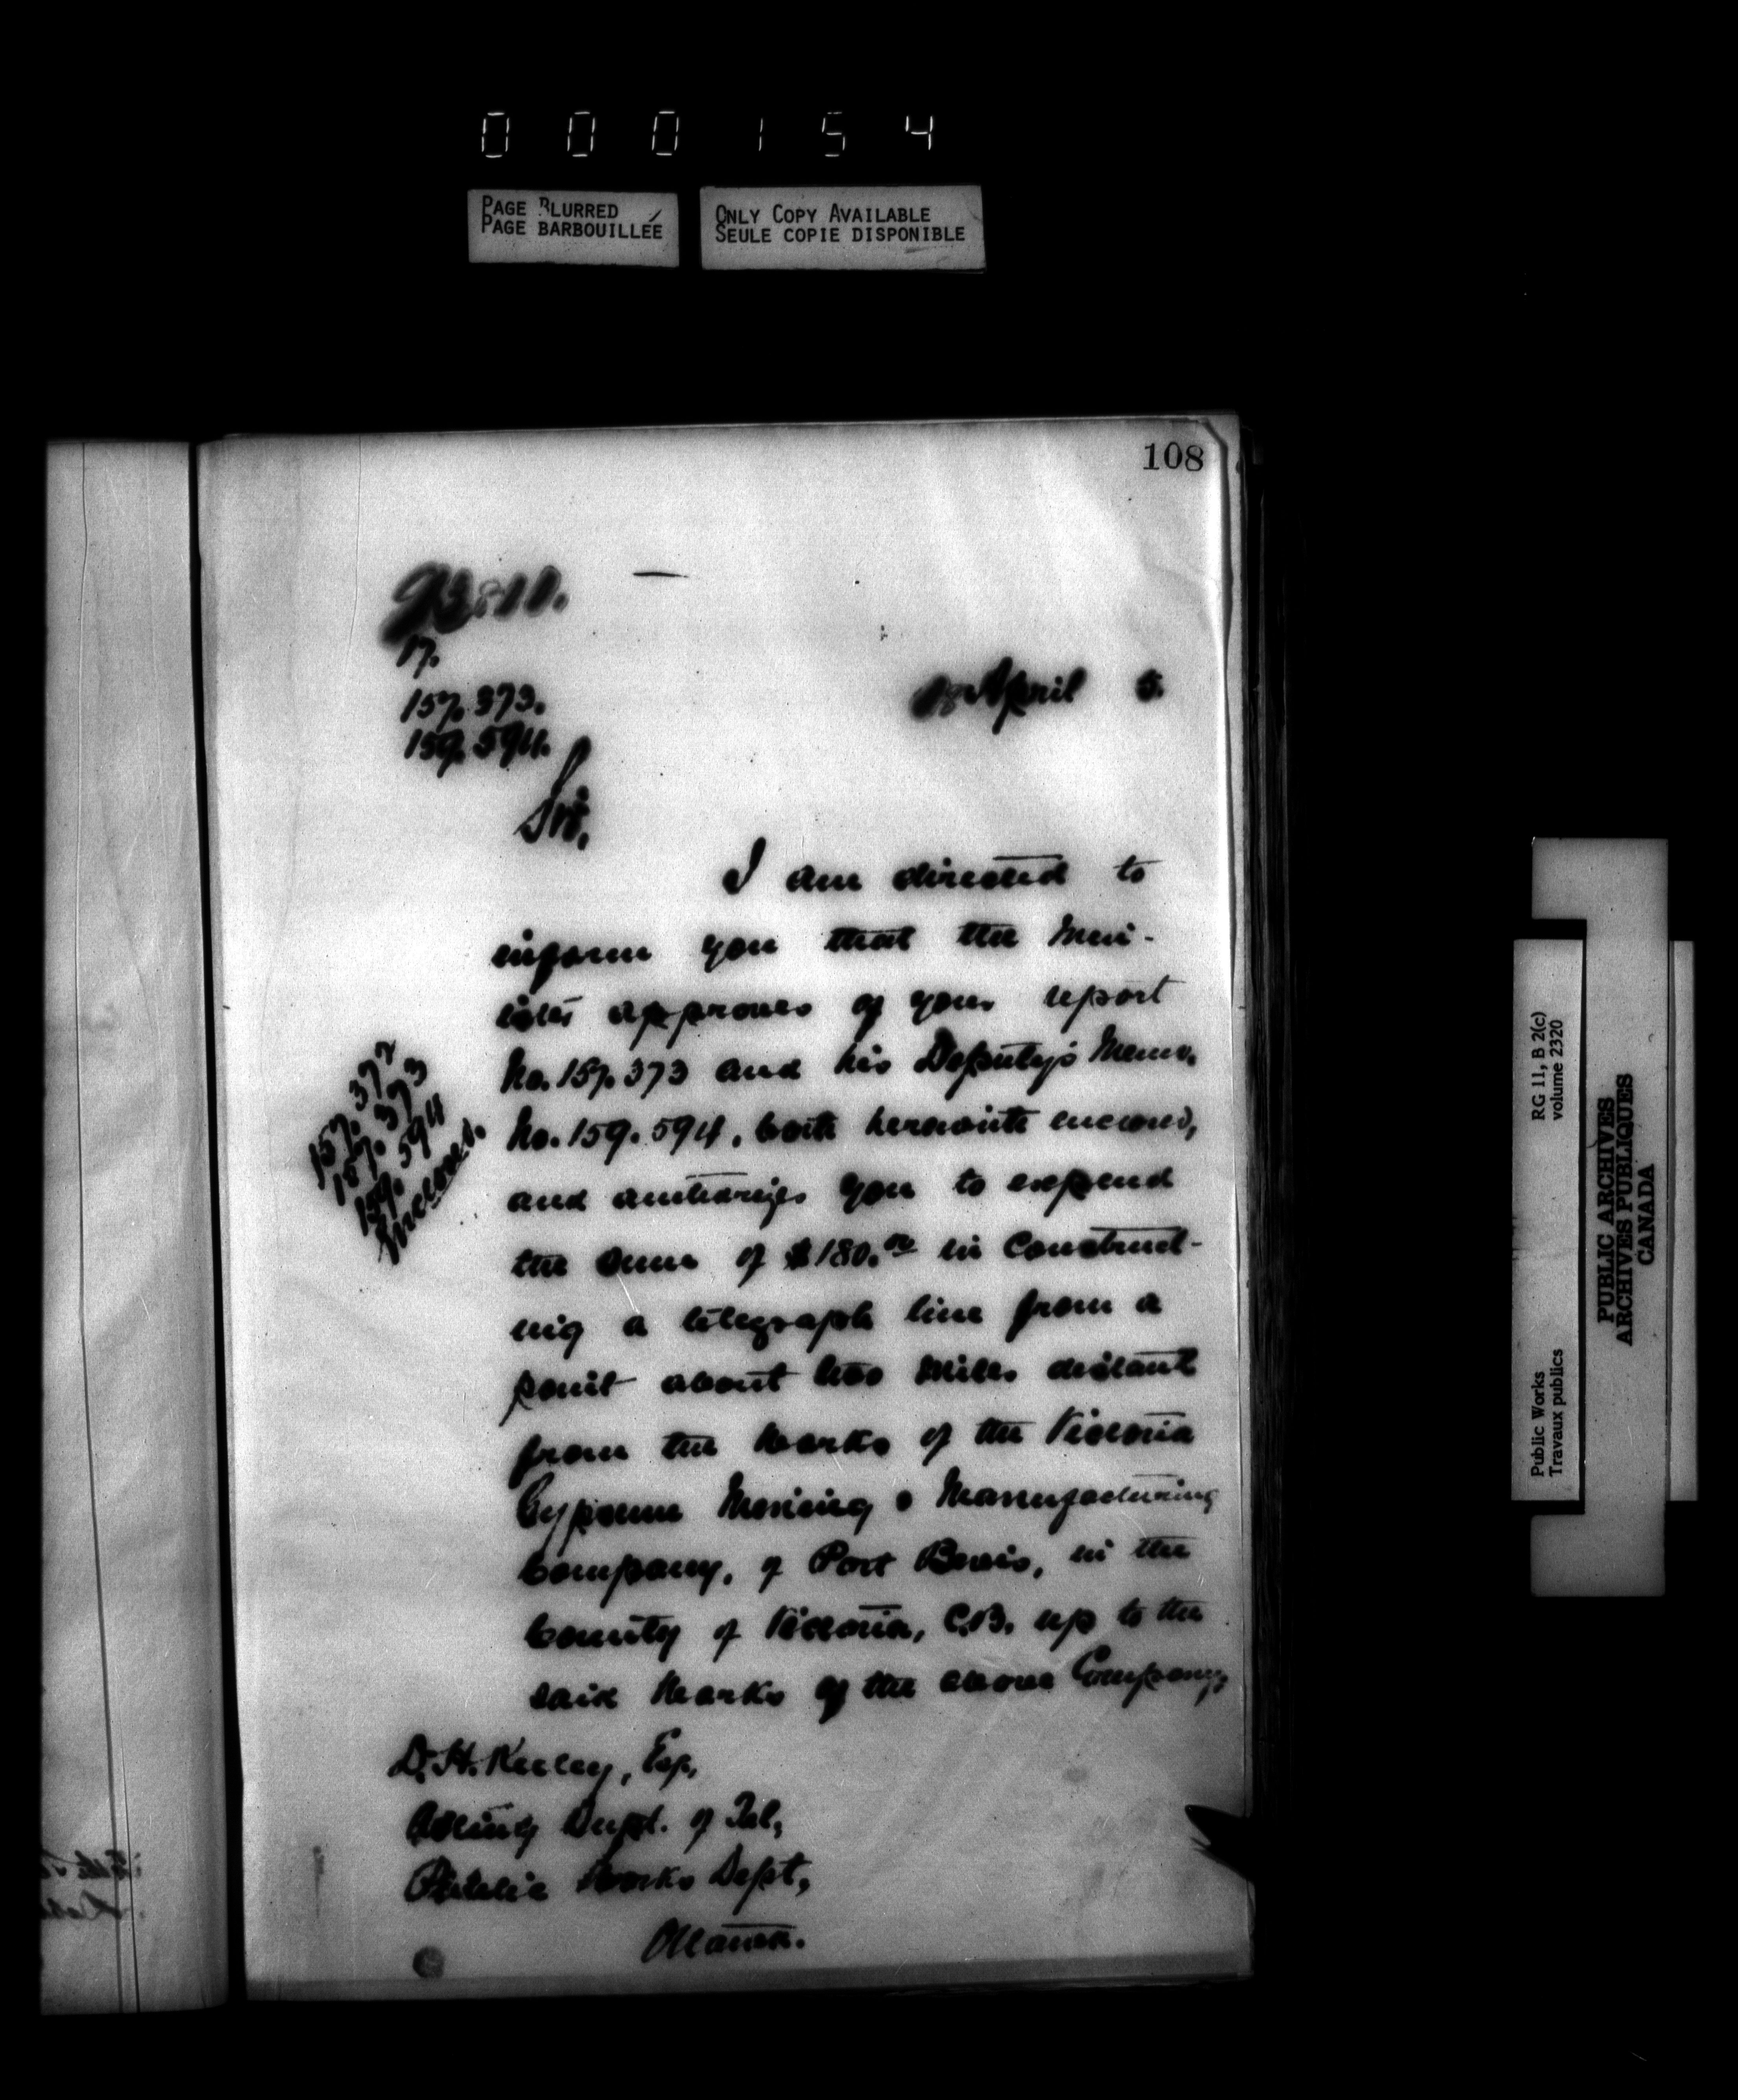 0 0 0 1 5 4
PAGE BLURRED
PAGE BARBOUILLÉE
ONLY COPY AVAILABLE
SEULE COPIE DISPONIBLE
108
17.
157.373.
159.594.
April 5.
Sir,
I am directed to
inform you that the Min-
ister approves of your report
No. 157.373 and his Deputy's Memo.
No. 159.594, both herewith enclosed,
and authorizes you to expend
the sum of $180.00 in construct-
ing a telegraph line from a
point about two miles distant
from the Works of the Victoria
Gypsum Mining & Manufacturing
Company, of Port Bevis, in the
County of Victoria, C.B. up to the
said Works of the above Company,
157.372
157.373
159.594
Enclosed.
D. H. Keeley, Esq,
Acting Supt. of Tel,
Public Works Dept,
Ottawa.
Public Works
Travaux publics
RG 11, B 2(c)
volume 2320
PUBLIC ARCHIVES
ARCHIVES PUBLIQUES
CANADA